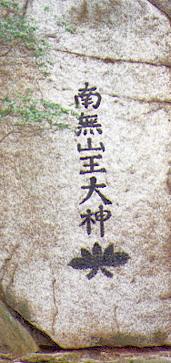 南無山王大神